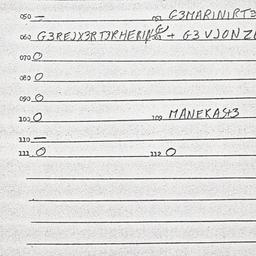 050 — 051 G3MARINIRT3
060 G3REJX3RT3RHERIN + G3VJONZL
070 O
080 O
090 O
100 O 109 MANEKASt3
110 —
111 O 112 O